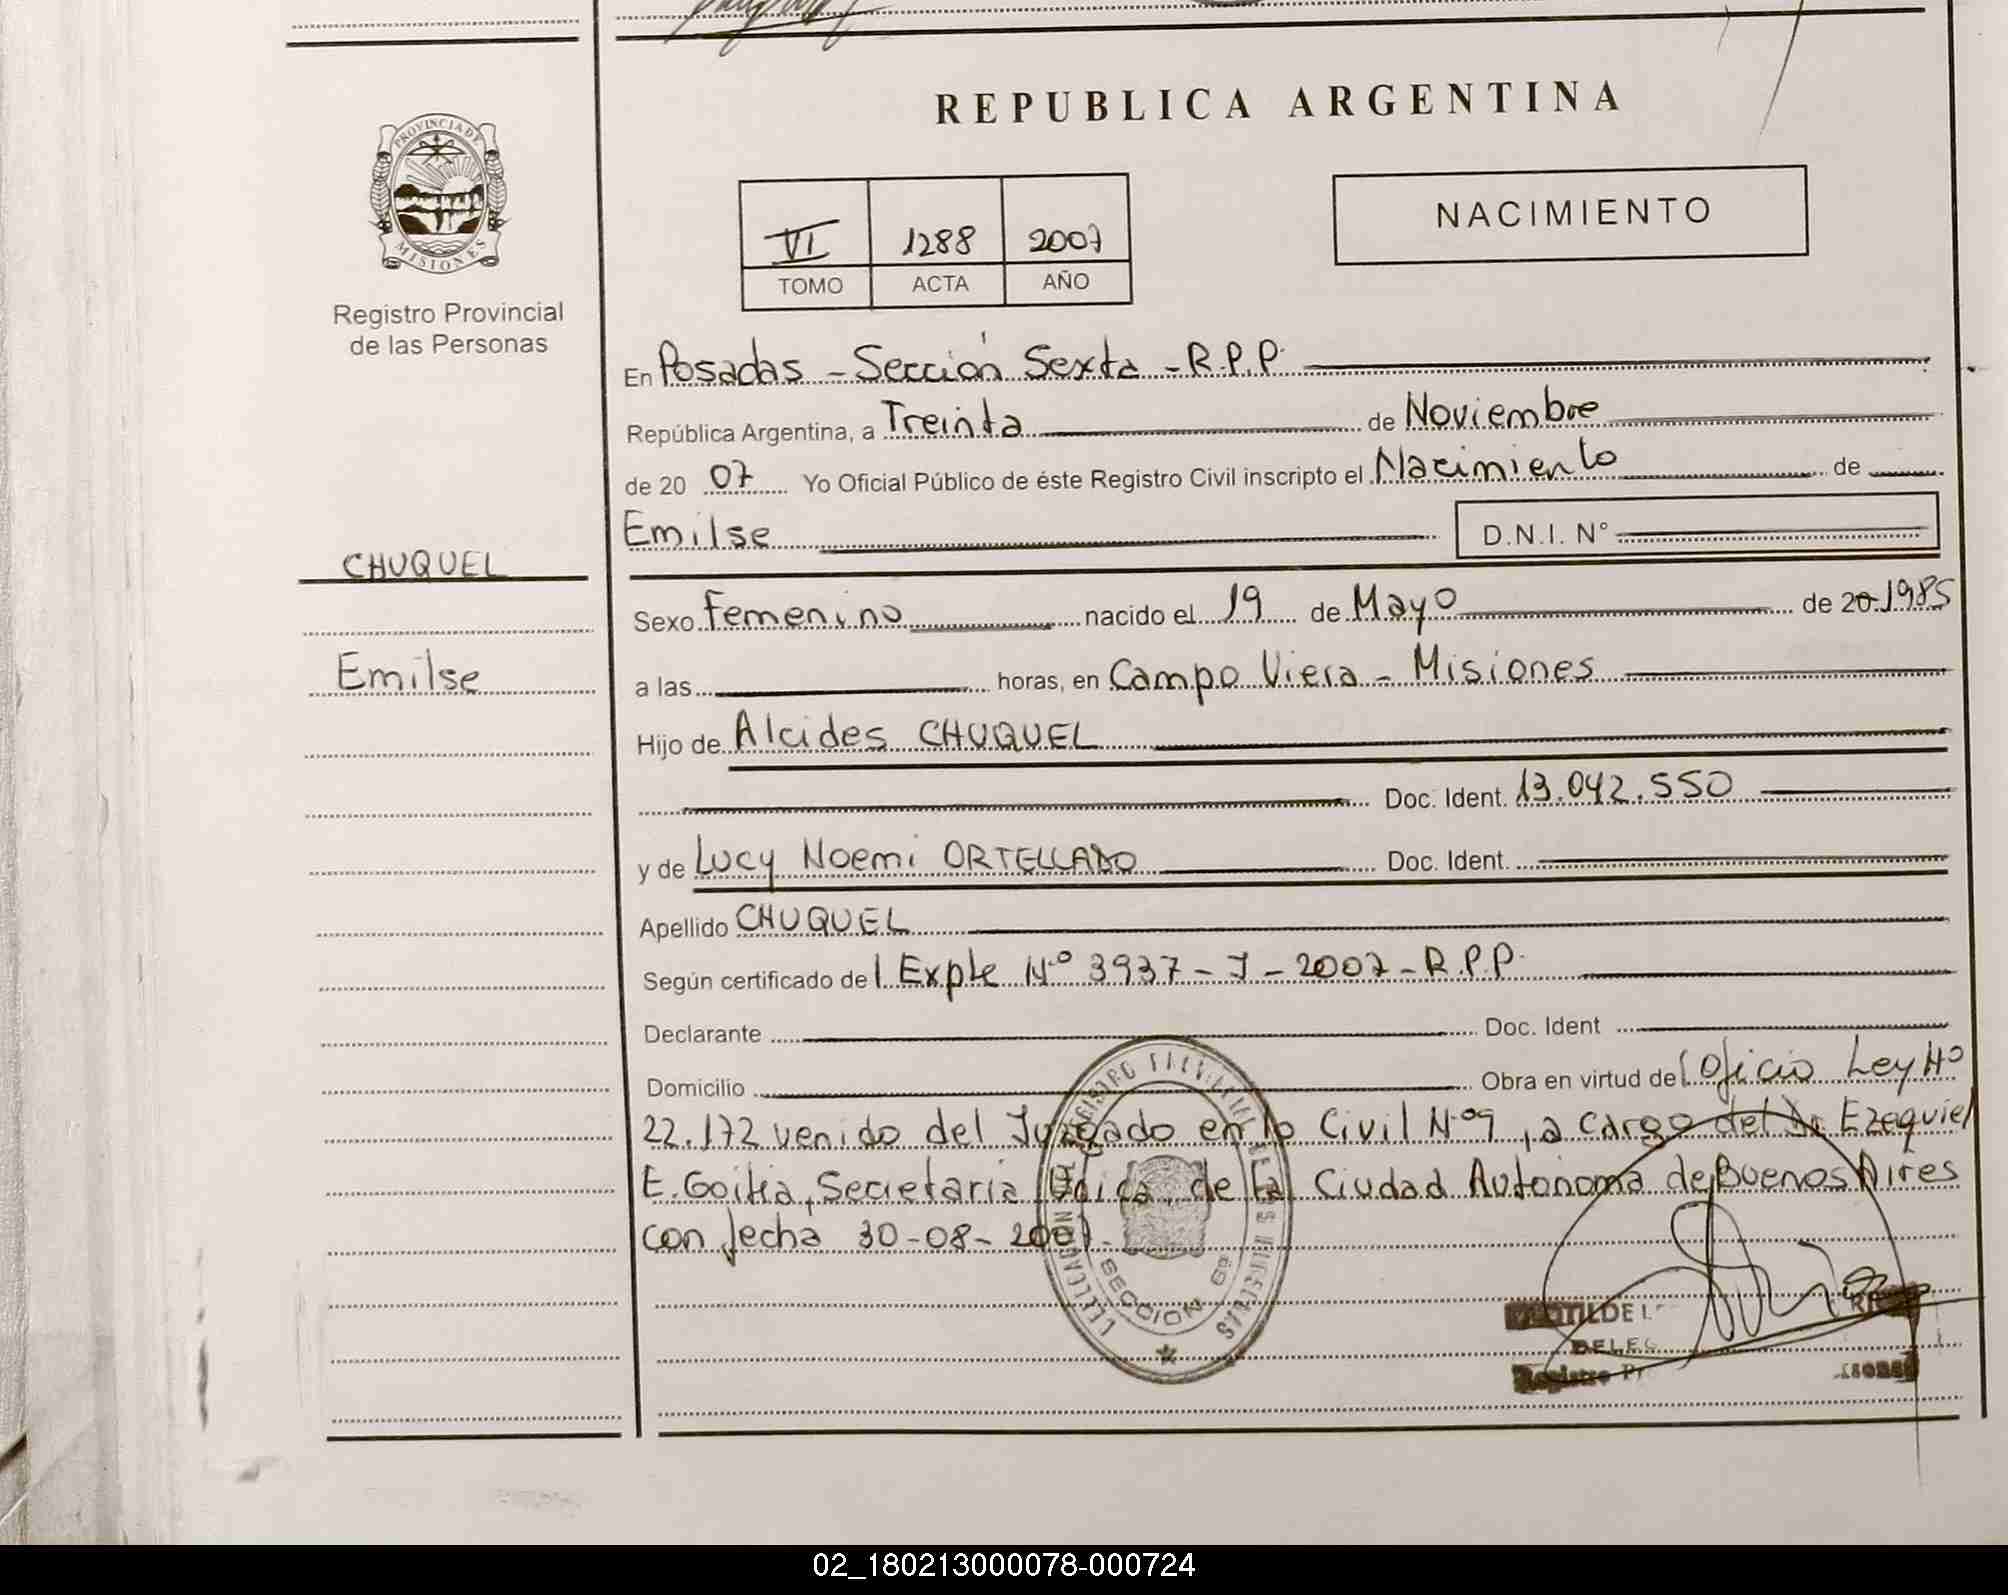 REPUBLICA ARGENTINA
PROVINCIA DE
MISIONES
Registro Provincial
de las Personas
NACIMIENTO
VI 1288 2007
TOMO ACTA AÑO
En Posadas - Sección Sexta - R.P.P.
República Argentina, a Treinta de Noviembre
de 20 07 Yo Oficial Público de éste Registro Civil inscripto el Nacimiento de
Emilse D.N.I. N°
CHUQUEL
Emilse
Sexo Femenino nacido el 19 de Mayo de 20 1985
a las horas, en Campo Viera - Misiones
Hijo de Alcides CHUQUEL
Doc. Ident. 13.042.550
y de Lucy Noemi ORTELLADO Doc. Ident.
Apellido CHUQUEL
Según certificado de l Expte N° 3937 - J - 2007 - R.P.P.
Declarante Doc. Ident
Domicilio Obra en virtud de l Oficio Ley N°
22.172 venido del Juzgado en lo Civil N° 9, a cargo del Dr Ezequiel
E. Goitia, Secretaria Unica, de la Ciudad Autonoma de Buenos Aires
con fecha 30-08-2007.
SECCION 6ª
02_180213000078-000724